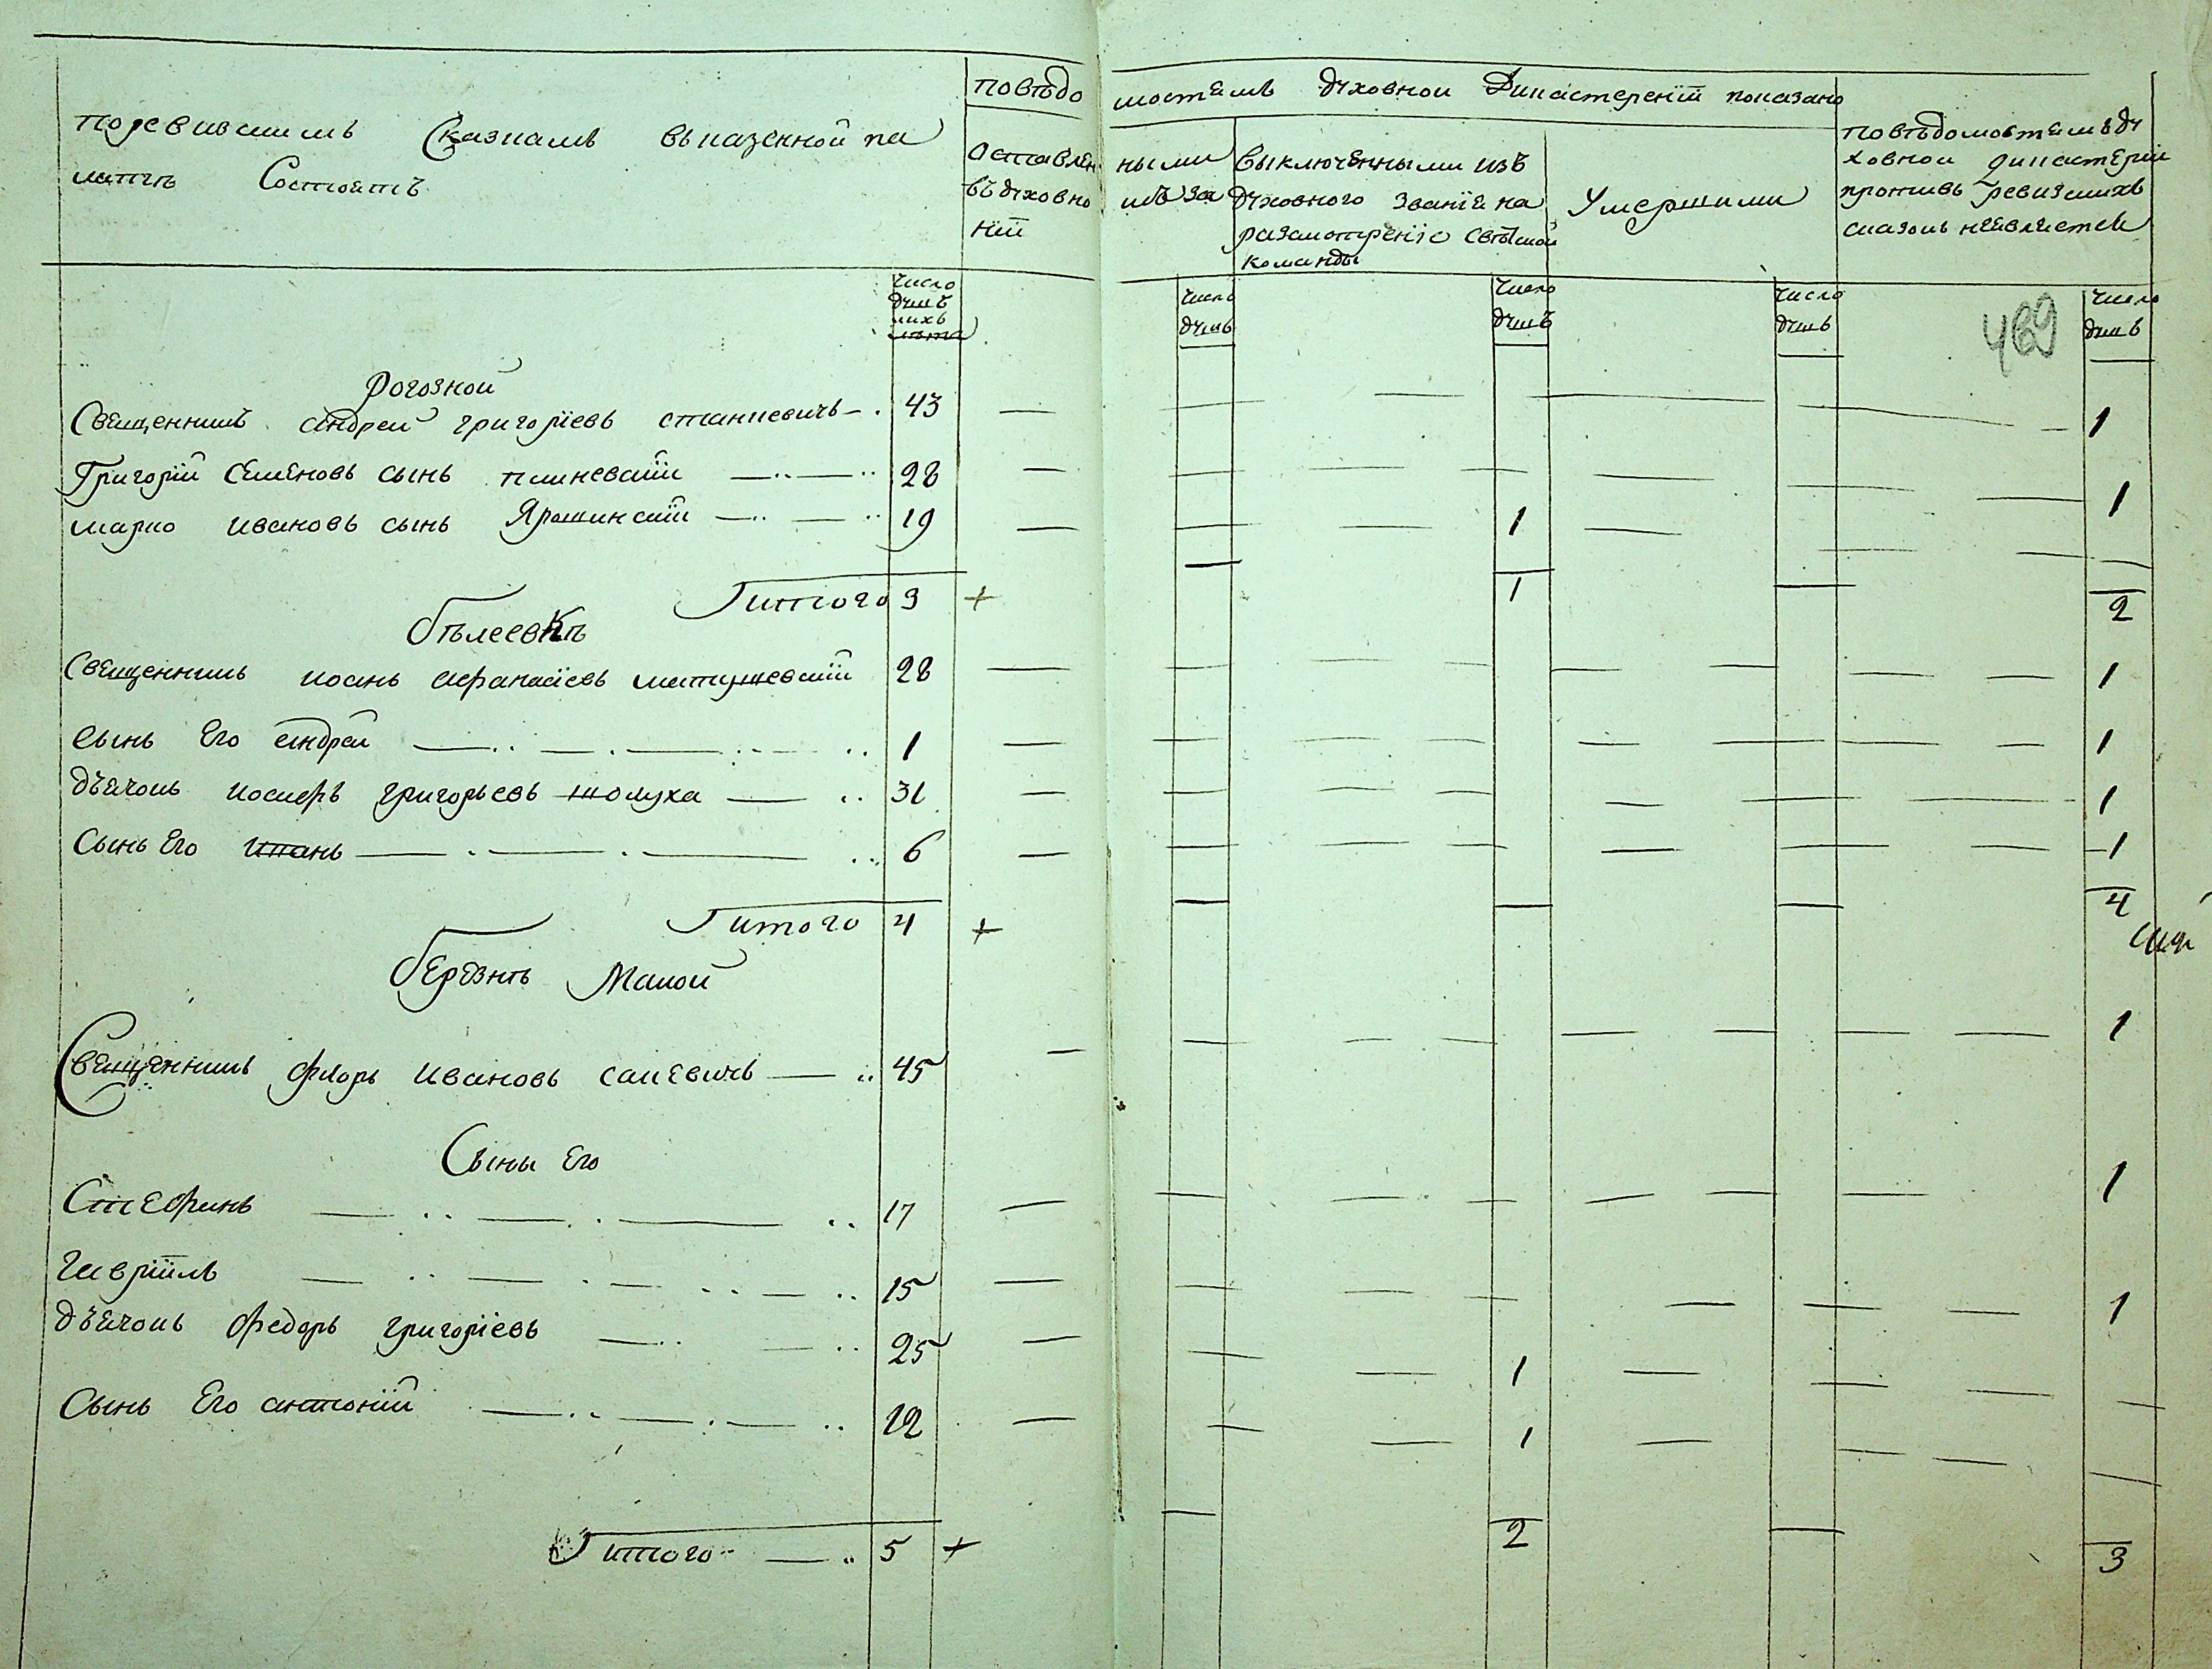 поревизскимъ Сказкамъ вьказенной па
латѣ Состоитъ
повѣдо мостямъ духовной Дикастерїи показано
Оставлен ными
въдуховно мъ зва
нїи
Выключенными изъ
духовного званїя на
разсмотренїе свѣтской
команды
Умершими
повѣдомостямъ ду
ховной дикастерїи
противъ ревизскихъ
сказокъ неявляется
число
душъ
ихъ
лѣта
число
душъ
число
душъ
число
душъ
число
душъ
469
Рогозной
Священникъ андрей григорїевъ станкевичь 43 1
Григорїй Семеновъ сынъ 28 1
марко ивановъ сынъ Ярошинскїй 19 1
итого 3 + 1 2
бѣлеевкѣ
Священникъ иоанъ афанасїевъ матушевскїй 28 1
сынъ Его андрей 1 1
дъячокъ иосифъ григорьевъ шолуха 31 1
Сынъ Его 6 1
итого 4 + 4
бЕрЕзнѣ Малой
Священникъ флоръ ивановъ сацевичь 45 1
Сыны Его
СтЕфанъ 17 1
гаврїилъ 15 1
дъячокъ федоръ григорїевъ 25 1
Сынъ Его антонїй 12 1
итого 5 + 2 3